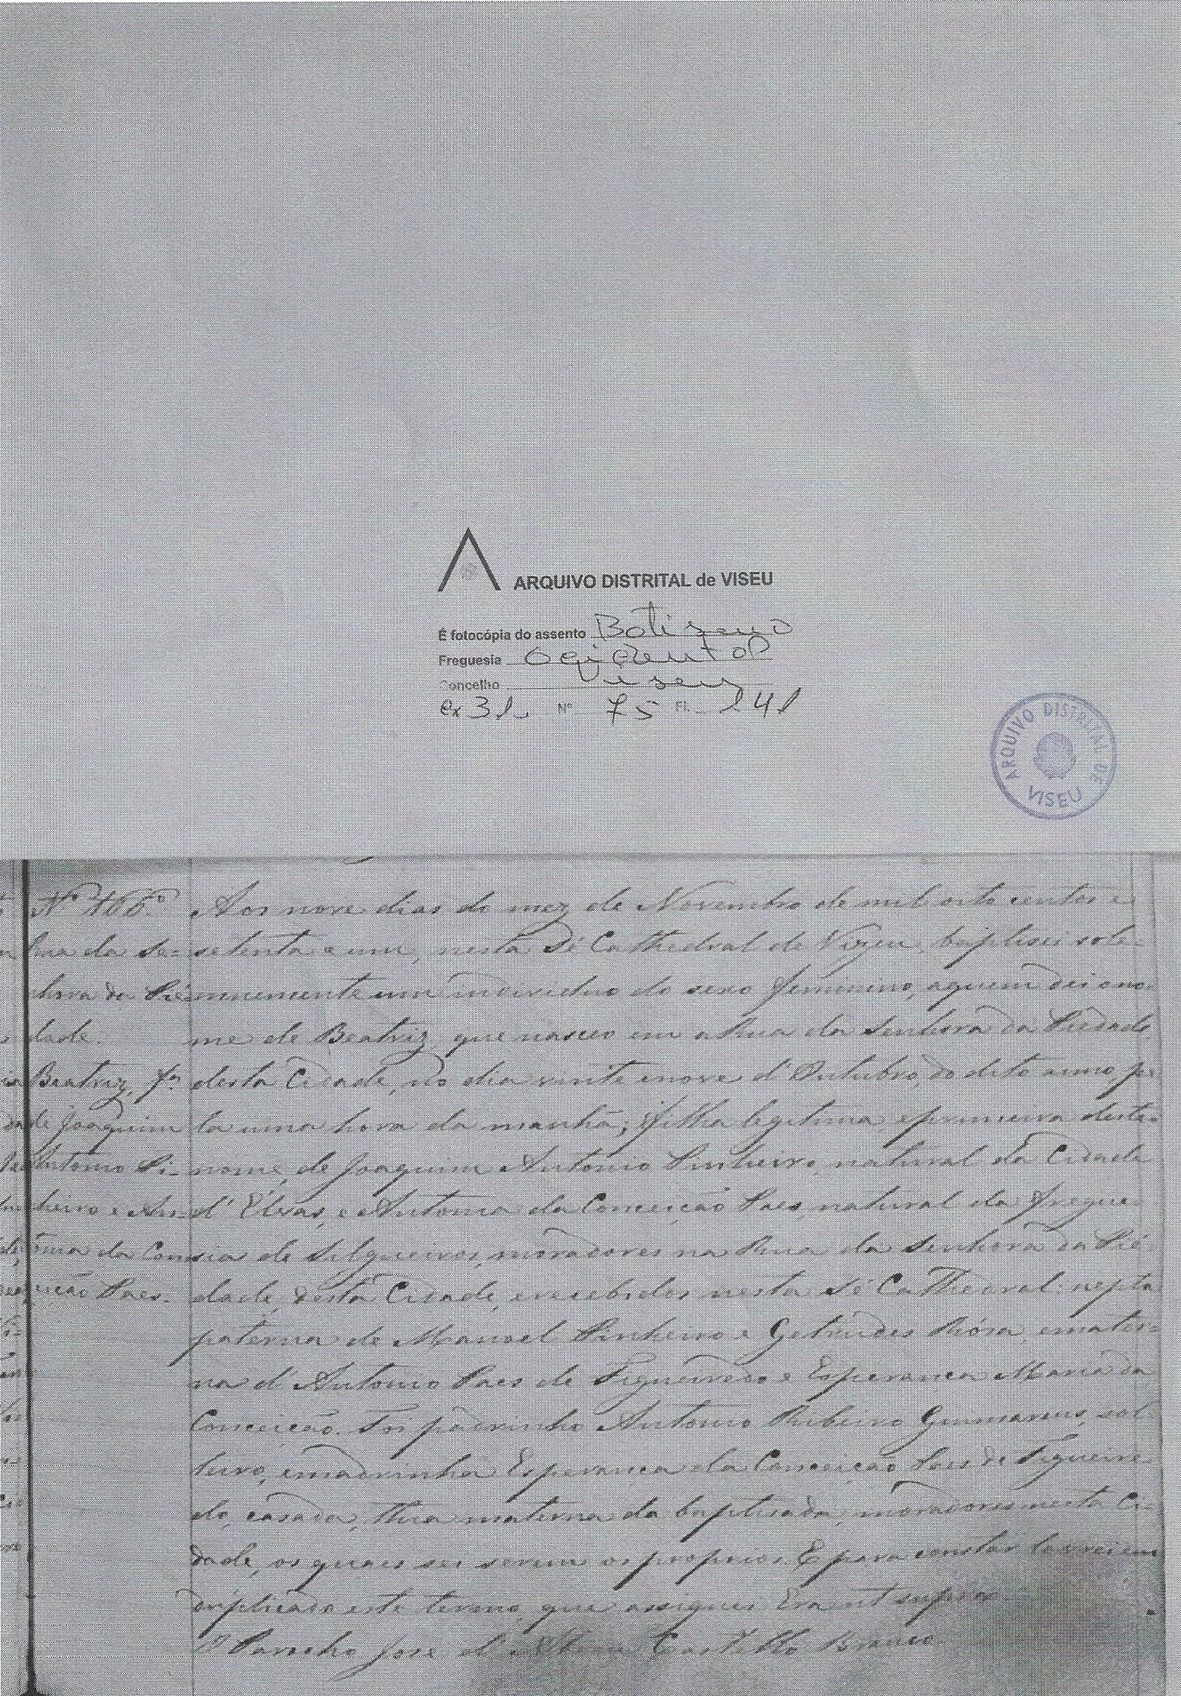 ARQUIVO DISTRITAL de VISEU
É fotocópia do assento Batismo
Freguesia Ocidental
Concelho Viseu
ex 3 Nº 75 Fl. 141
ARQUIVO DISTRITAL DE VISEU
Nº 166º
Rua da Se-
nhora da Pie
dade.
Beatriz, fª
de Joaquim
Antonio Pi-
nheiro e An-
tonia da Con
ceição Paes.
Aos nove dias do mez de Novembro de mil oito centos e
setenta e um, nesta Sé Cathedral de Vizeu, baptisei sole-
mnemente um individuo do sexo feminino, aquem dei o no
me de Beatriz, que nasceu em a Rua da Senhora da Piedade,
desta Cidade, no dia vinte enove d'Outubro, do dito anno, pe
la uma hora da manhã; filha legitima eprimeira deste
nome, de Joaquim Antonio Pinheiro, natural da Cidade
d'Elvas, e Antonia da Conceição Paes, natural da fregue-
sia de Silgueiros, moradores na Rua da Senhora da Pie-
dade, desta Cidade, erecebidos nesta Sé Cathedral: nepta
paterna de Manoel Pinheiro e Getrudes Rosa, emater-
na d'Antonio Paes de Figueiredo e Esperança Maria da
Conceição. Foi padrinho Antonio Ribeiro Guimarães, sol-
teiro, emadrinha Esperança da Conceição Paes de Figueire-
do, casada, thia materna da baptisada, moradores nesta Ci-
dade, os quaes sei serem os proprios. E para constar lavrei em
duplicado este termo, que assignei. Era ut supra.
O Parocho José d' Castello Branco